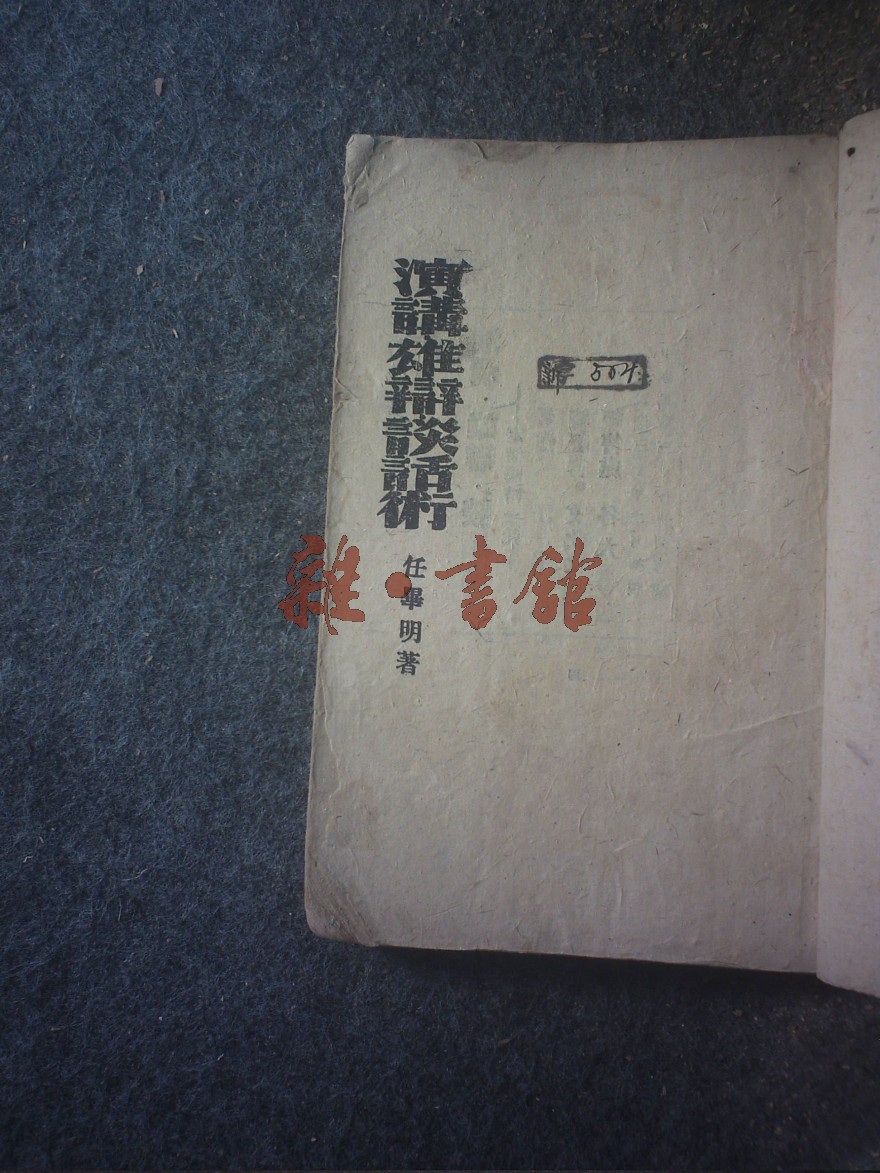 演講雄辯談話術
任畢明著
504
雜·書館